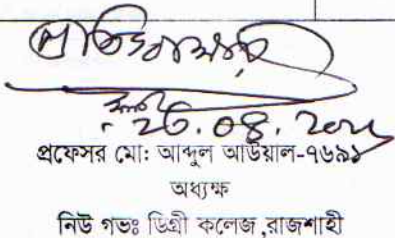 প্রফেসর মো: আব্দুল আউয়াল-৭৬৯১
অধ্যক্ষ
নিউ গভঃ ডিগ্রী কলেজ,রাজশাহী